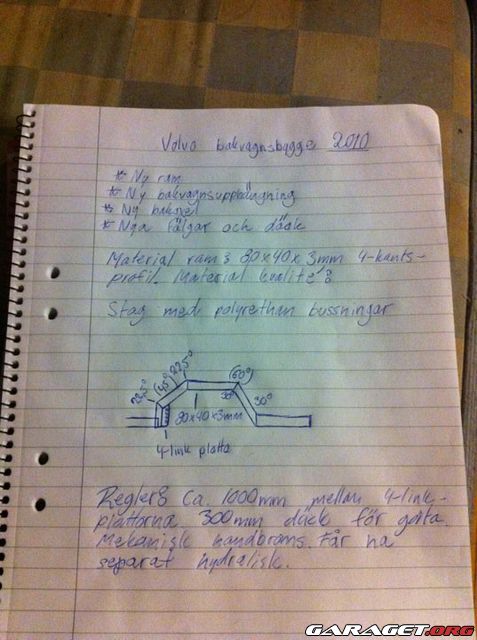 Volvo bakvagnsbygge 2010
* Ny ram
* Ny bakvagnsupphängning
* Ny bakaxel
* Nya fälgar och däck
Material ram: 80x40x3mm 4-kants-
profil. Material kvalité:
Stag med polyrethan bussningar
22,5° (45°) 22,5° (60°)
30° 30°
80x40x3mm
4-link platta
Regler: Ca. 1000mm mellan 4-link-
plattorna. 300mm däck för gata.
Mekanisk handbroms. Får ha
separat hydralisk.
GARAGET.ORG